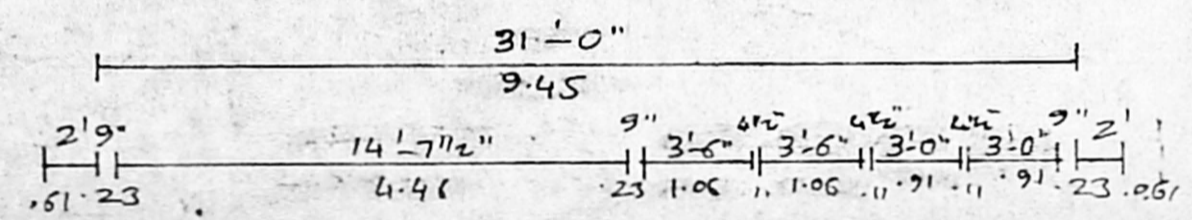 31'-0"
9.45
2' 9" 14'-7 1/2" 9" 3'-6" 4 1/2" 3'-6" 4 1/2" 3'-0" 4 1/2" 3'-0" 9" 2'
.61 .23 4.46 .23 1.06 .11 1.06 .11 .91 .11 .91 .23 .061